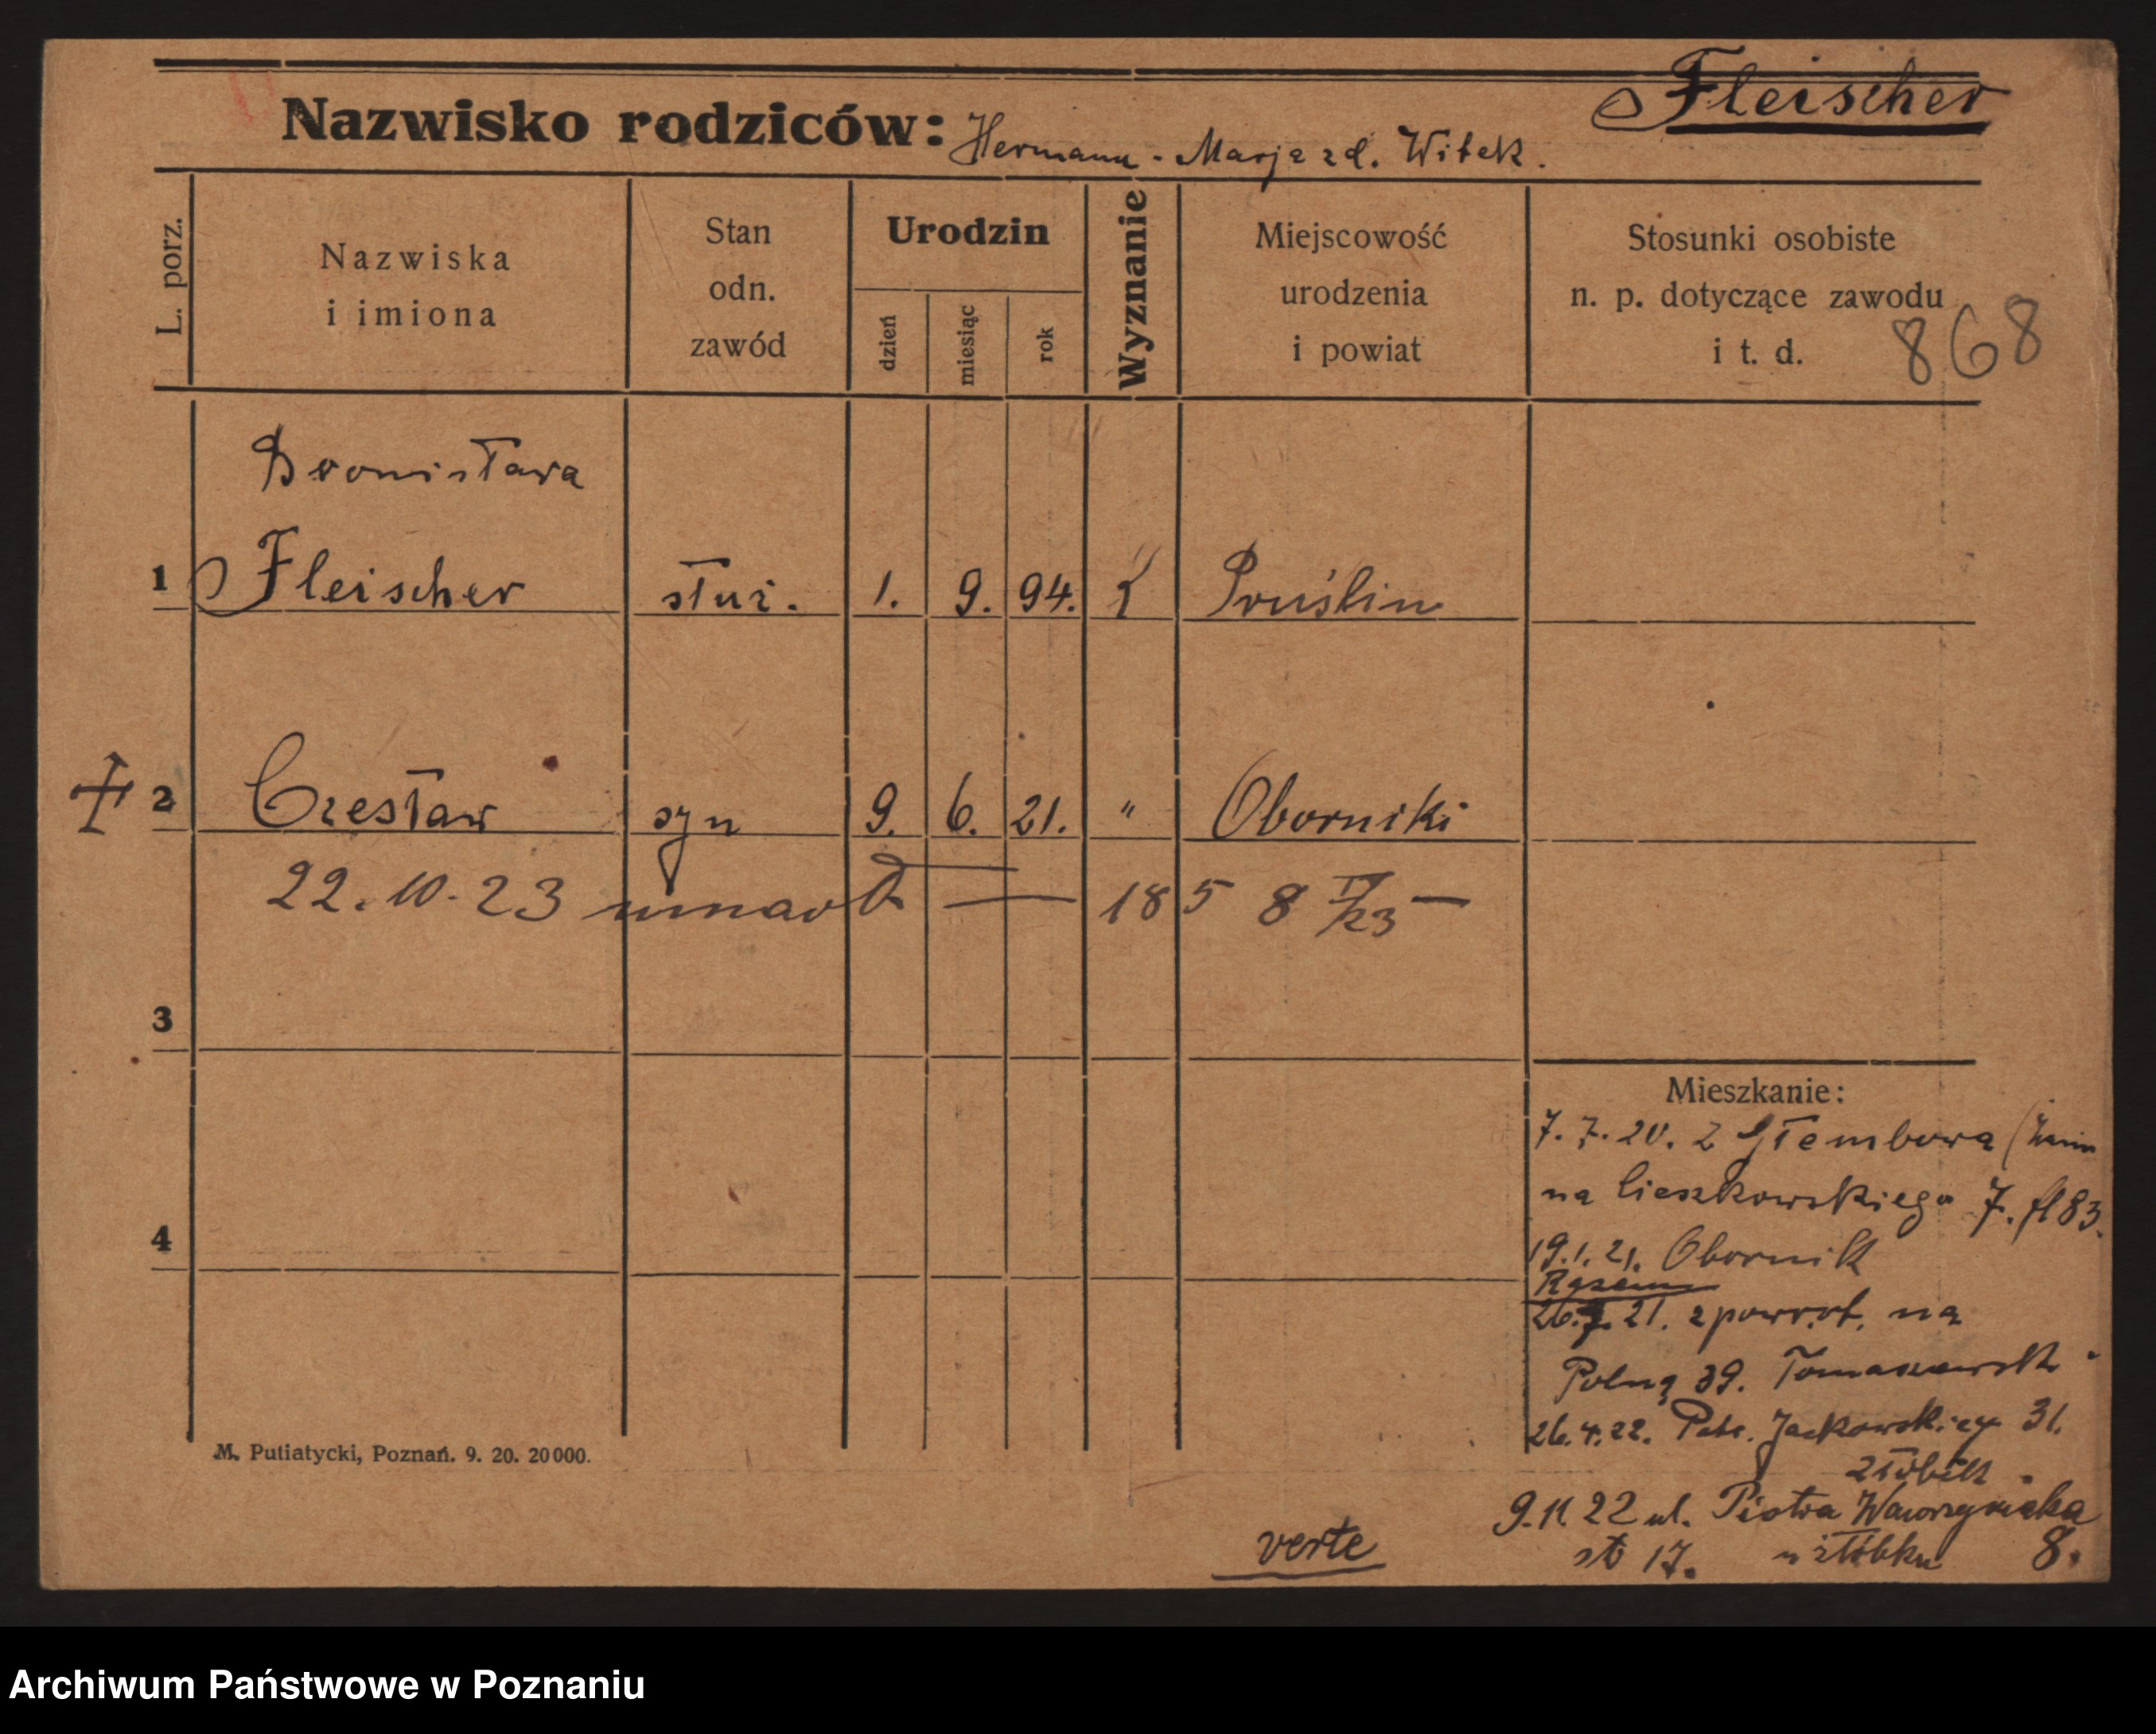 Fleischer
Nazwisko rodziców: Hermann - Marja zd. Witek.
L. porz.
Nazwiska
i imiona
Stan
odn.
zawód
Urodzin
dzień
miesiąc
rok
Wyznanie
Miejscowość
urodzenia
i powiat
Stosunki osobiste
n. p. dotyczące zawodu
i t. d.
868
Bronisława
1 Fleischer służ. 1. 9. 94. k Pruślin
2 Czesław syn 9. 6. 21. " Oborniki
22. 10. 23 umarł — 185 8 IV/23 —
3
4
Mieszkanie:
7. 7. 20. z
na Cieszkowskiego 7. fl 83.
19. 1. 21. Obornik
Razem
26. 7. 21. zpowrot. na
Polną 39. Tomaszewsk
26. 4. 22. Jackowskieg 31.
żłóbek
9. 11. 22 ul. Piotra Wawrzyniaka
17. u żłóbku 8.
M. Putiatycki, Poznań. 9. 20. 20000.
verte
Archiwum Państwowe w Poznaniu